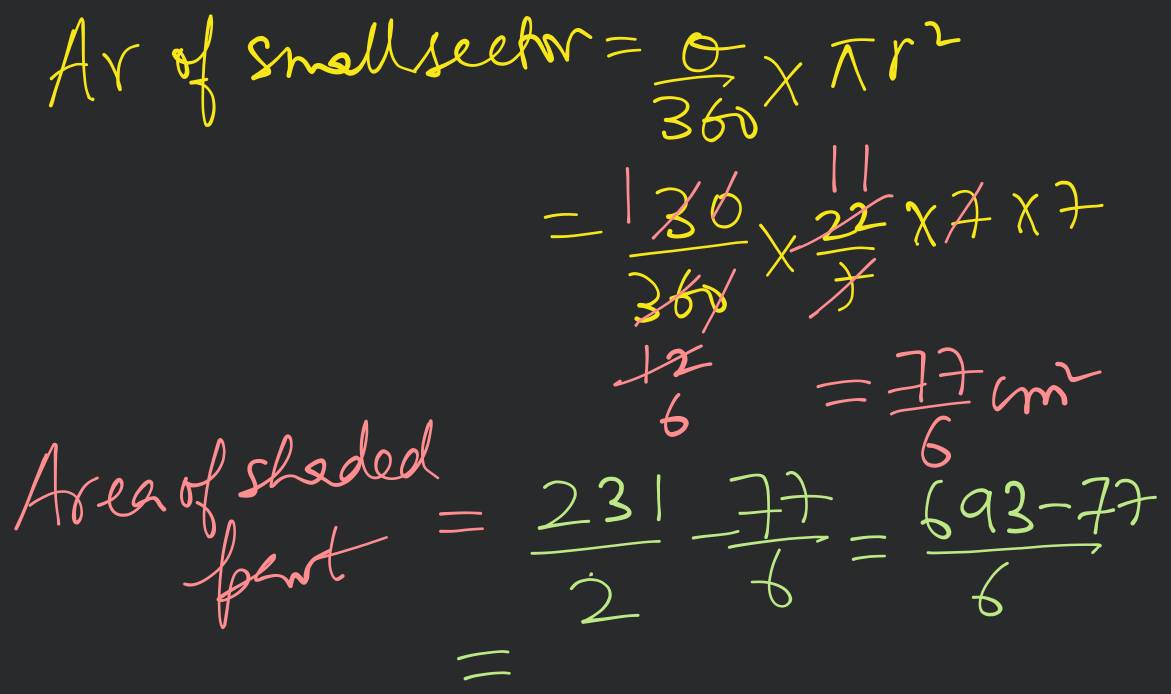 Ar of small sector = θ/360 × πr²
= 1 30/360 × 11 22/7 × 7 × 7
12
6
= 77/6 cm²
Area of shaded part = 231/2 - 77/6 = 693-77/6
=